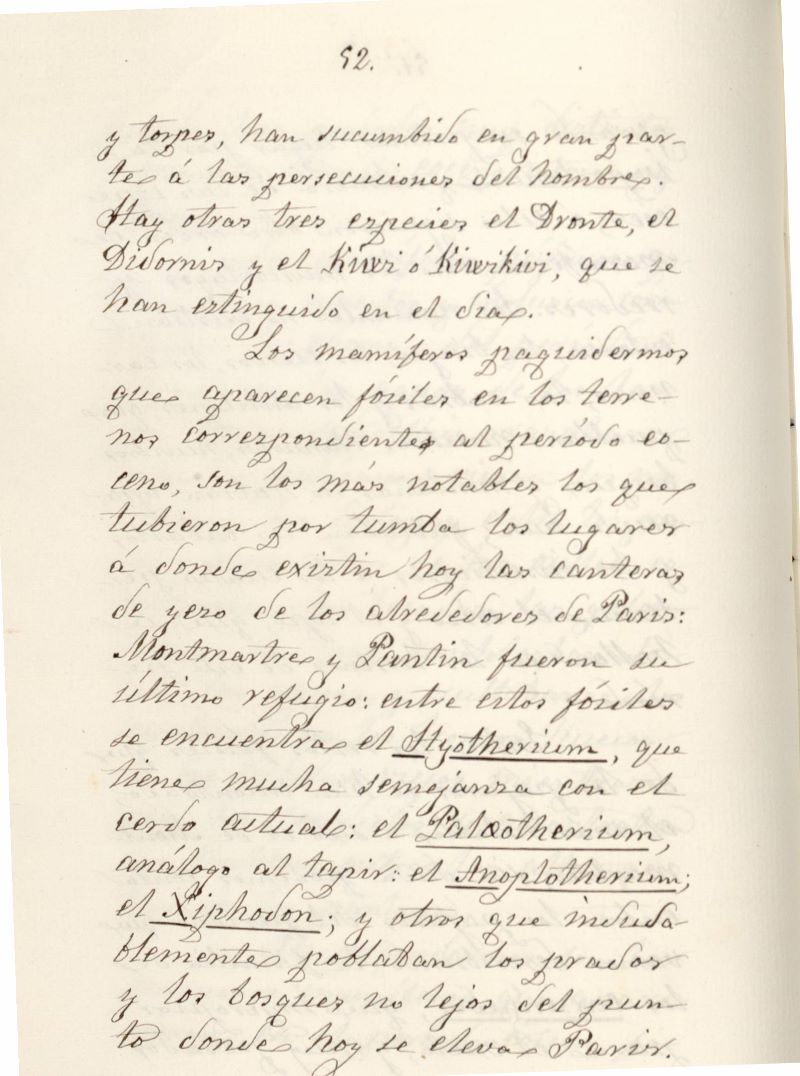 52.
y torpes, han sucumbido en gran par-
te á las persecuciones del hombre.
Hay otras tres especies el Dronte, el
Didornis y el Kiwi ó Kiwikivi, que se
han estinguido en el dia.
Los mamíferos paquidermos
que aparecen fósiles en los terre-
nos correspondientes al período eo-
ceno, son los más notables los que
tubieron por tumba los lugares
á donde existin hoy las canteras
de yeso de los alrededores de Paris:
Montmartre y Pantin fueron su
último refugio: entre estos fósiles
se encuentra el Hyotherium, que
tiene mucha semejanza con el
cerdo actual: el Palæotherium,
análogo al tapir: el Anoplotherium;
el Xiphodon; y otros que induda-
blemente poblaban los prados
y los bosques no lejos del pun-
to donde hoy se eleva Paris.